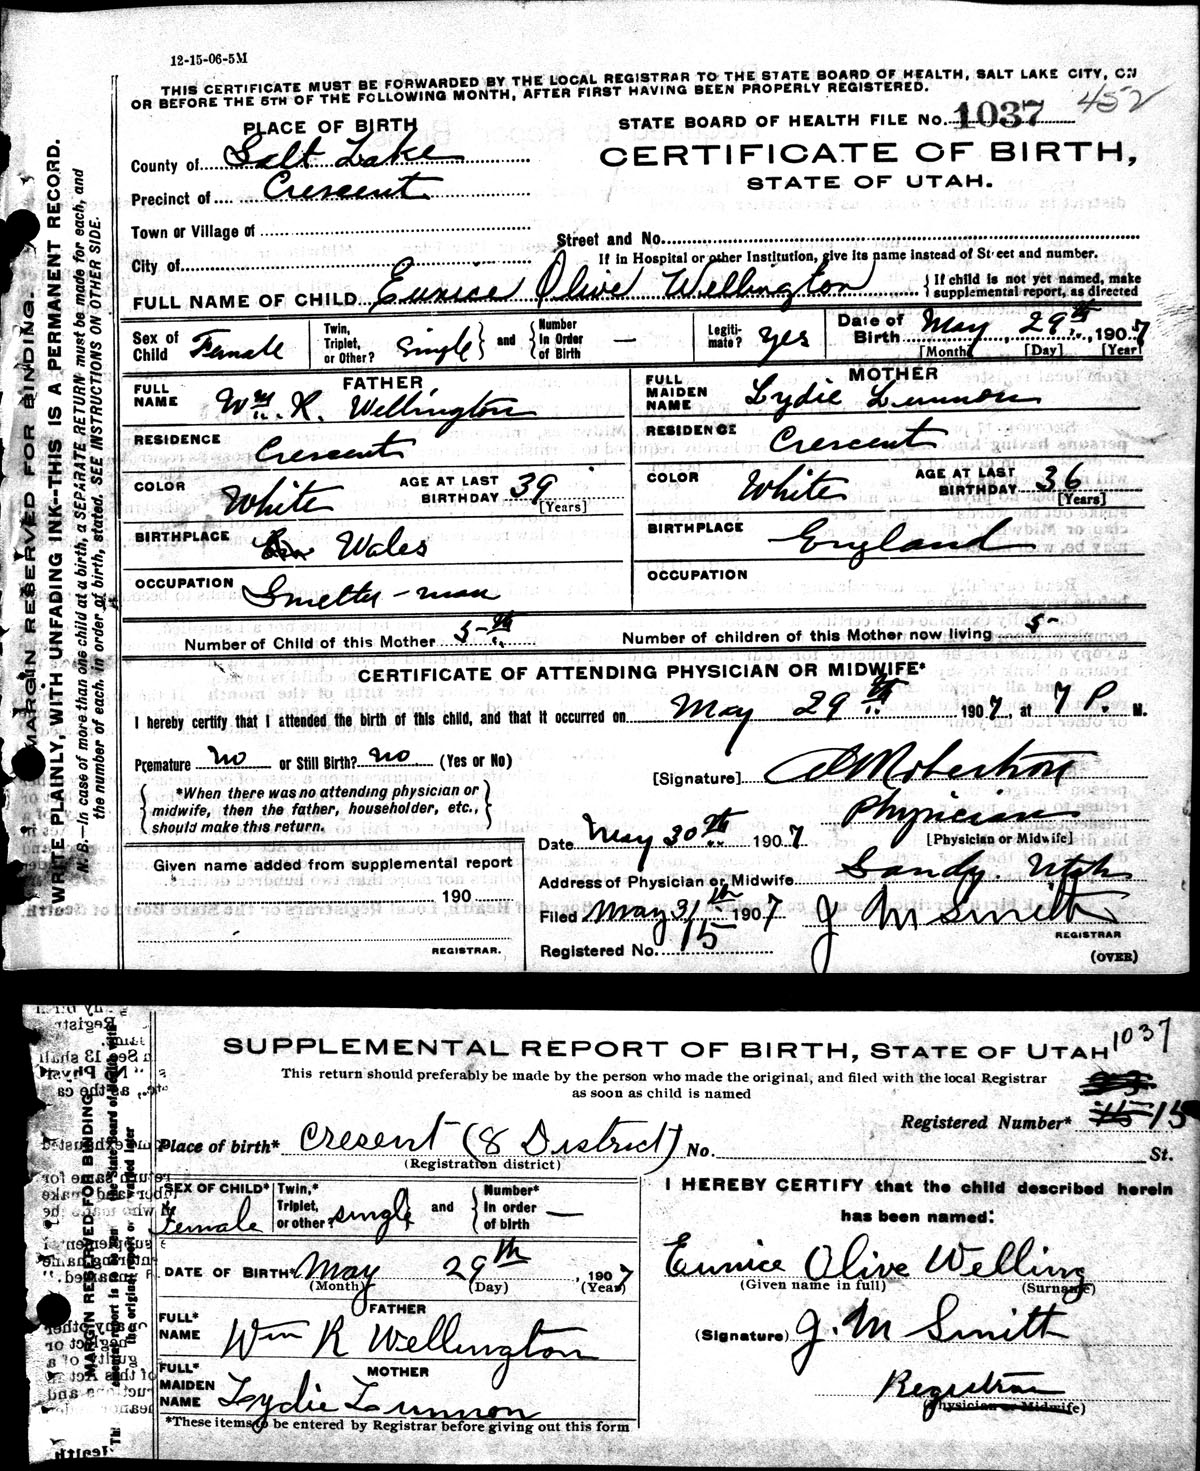 12-15-06-5M
THIS CERTIFICATE MUST BE FORWARDED BY THE LOCAL REGISTRAR TO THE STATE BOARD OF HEALTH, SALT LAKE CITY, ON
OR BEFORE THE 5TH OF THE FOLLOWING MONTH, AFTER FIRST HAVING BEEN PROPERLY REGISTERED.
452
STATE BOARD OF HEALTH FILE No. 1037
CERTIFICATE OF BIRTH,
STATE OF UTAH.
PLACE OF BIRTH
County of Salt Lake
Precinct of Crescent
Town or Village of
City of
Street and No.
If in Hospital or other Institution, give its name instead of Street and number.
FULL NAME OF CHILD Eunice Olive Wellington {If child is not yet named, make supplemental report, as directed
Sex of Child Female Twin, Triplet, or Other? Single and Number in Order of Birth — Legitimate? yes Date of Birth May 29th, 1907
[Month] [Day] [Year]
FATHER
FULL NAME Wm. R. Wellington
RESIDENCE Crescent
COLOR White AGE AT LAST BIRTHDAY 39 [Years]
BIRTHPLACE Wales
OCCUPATION Smelter-man
MOTHER
FULL MAIDEN NAME Lydie Lunnon
RESIDENCE Crescent
COLOR White AGE AT LAST BIRTHDAY 36 [Years]
BIRTHPLACE England
OCCUPATION
Number of Child of this Mother 5th Number of children of this Mother now living 5
CERTIFICATE OF ATTENDING PHYSICIAN OR MIDWIFE*
I hereby certify that I attended the birth of this child, and that it occurred on May 29th 1907, at 7 P. M.
Premature no or Still Birth? no (Yes or No)
*When there was no attending physician or
midwife, then the father, householder, etc.,
should make this return.
Given name added from supplemental report
190
REGISTRAR.
[Signature] Robertson
Physician
[Physician or Midwife]
Date May 30th 1907
Address of Physician or Midwife Sandy Utah
Filed May 31th 1907 J M Smith
REGISTRAR
Registered No. 15
(OVER)
MARGIN RESERVED FOR BINDING.
WRITE PLAINLY, WITH UNFADING INK--THIS IS A PERMANENT RECORD.
N. B.--In case of more than one child at a birth, a SEPARATE RETURN must be made for each, and
the number of each, in order of birth, stated. SEE INSTRUCTIONS ON OTHER SIDE.
SUPPLEMENTAL REPORT OF BIRTH, STATE OF UTAH 1037
This return should preferably be made by the person who made the original, and filed with the local Registrar
as soon as child is named
Registered Number* 15
Place of birth* Cresent (8 District) No. St.
(Registration district)
SEX OF CHILD* Female Twin,* Triplet, or other? single and Number* In order of birth —
DATE OF BIRTH* May 29th, 1907
(Month) (Day) (Year)
FATHER
FULL* NAME Wm R Wellington
MOTHER
FULL* MAIDEN NAME Lydie Lunnon
*These items to be entered by Registrar before giving out this form
I HEREBY CERTIFY that the child described herein
has been named:
Eunice Olive Welling
(Given name in full) (Surname)
(Signature) J. M Smith
Registrar
(Physician or Midwife)
MARGIN RESERVED FOR BINDING